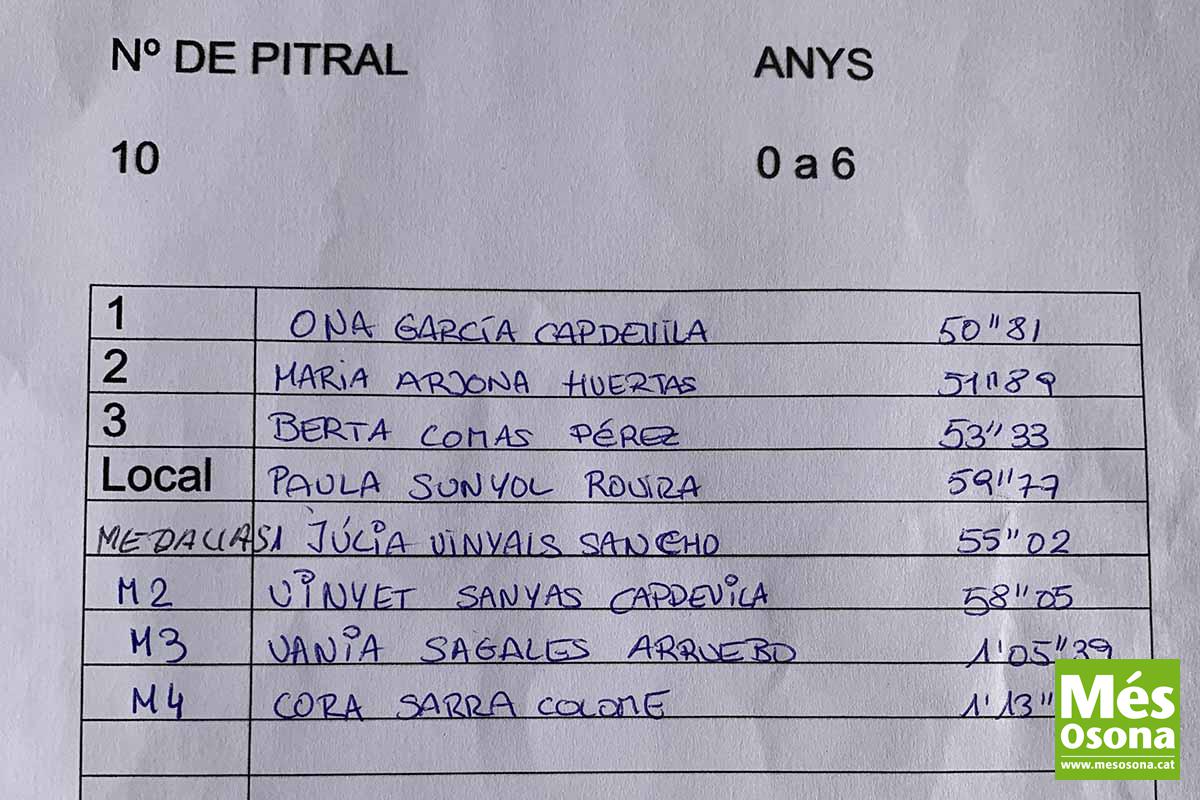 Nº DE PITRAL ANYS
10 0 a 6
1 ONA GARCÍA CAPDEVILA 50"81
2 MARIA ARJONA HUERTAS 51"89
3 BERTA COMAS PÉREZ 53"33
Local PAULA SUNYOL ROVIRA 59"77
MEDALLAS1 JÚLIA VINYALS SANCHO 55"02
M2 VINYET SANYAS CAPDEVILA 58"05
M3 VANIA SAGALES ARRUEBO 1'05"39
M4 CORA SARRA COLOME 1'13"
Més
Osona
www.mesosona.cat